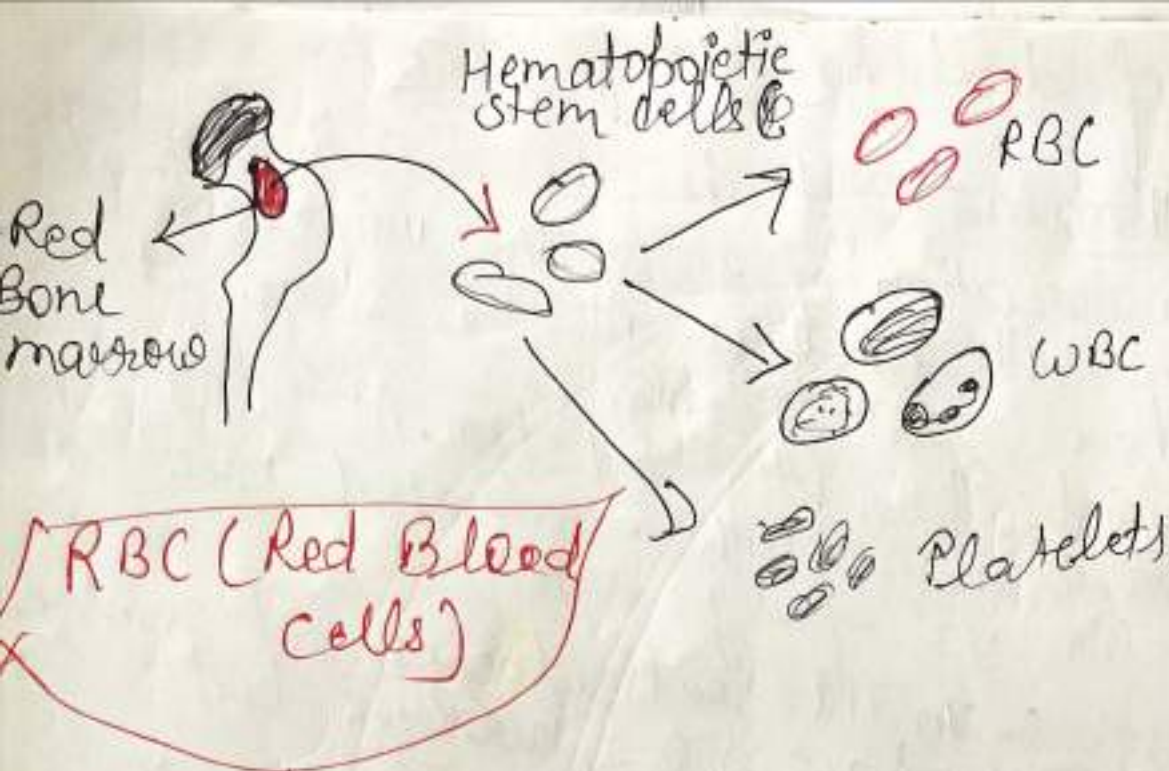 Hematopoietic
stem cells
RBC
Red
Bone
marrow
WBC
Platelets
RBC (Red Blood
Cells)